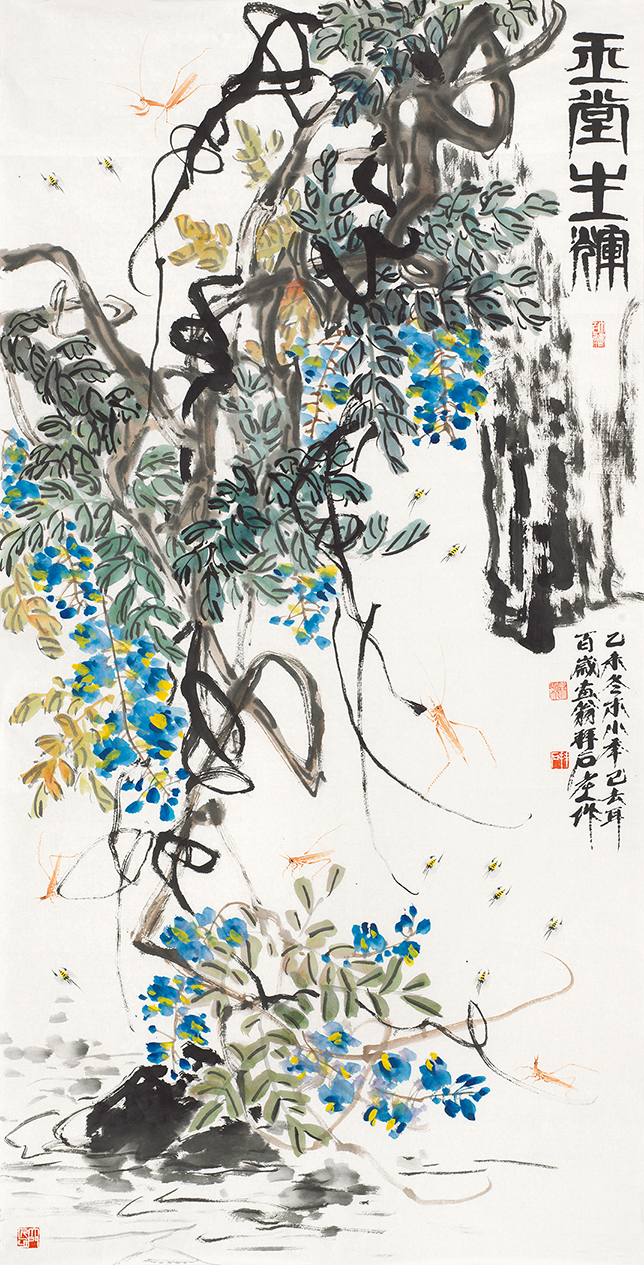 玉堂生輝
乙未冬末小年已去耳
百歲畫翁拜石堂作